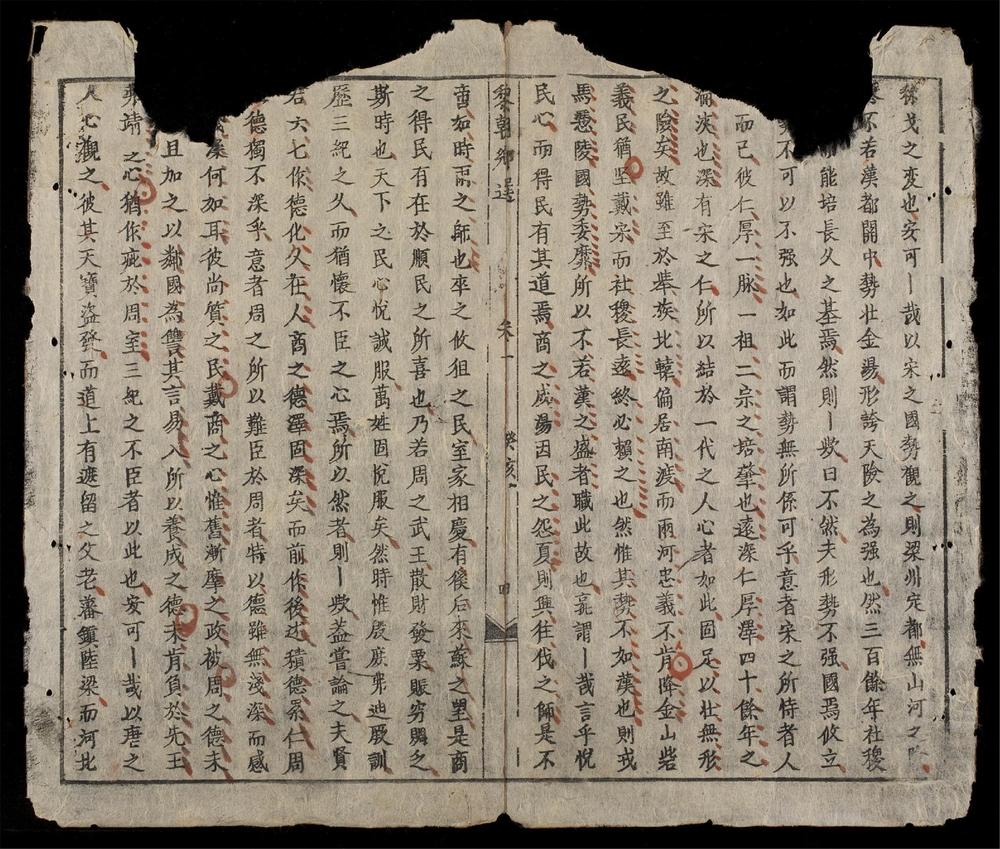 之變也安可丨哉以宋之國勢觀之則梁州定都無山河之
不若漢都關中勢壮金湯形誇天險之為强也然三百餘年社稷
能培長久之基焉然則丨欤曰不然夫形勢不强國焉攸立
不可以不强也如此而謂勢無所係可乎意者宋之所恃者人
而已彼仁厚一脉一祖二宗之培肇也遠深仁厚澤四十餘年之
浹也深有宋之仁所以結於一代之人心者如此固足以壮無形
之險矣故雖至於舉族北轅偏居南渡而兩河忠義不肯降金山砦
義民猶坚戴宋而社稷長遠終必賴之也然惟其勢不如漢也則戎
馬憑陵國勢委靡所以不若漢之盛者職此故也丨哉言乎悅
民心而得民有其道焉商之成湯因民之怨夏則興徃伐之師是不
黎朝鄉選
啻如時雨之師也卒之攸徂之民室家相慶有徯后來蘇之望是商
之得民有在於順民之所喜也乃若周之武王散財發粟賑穷賙乏
斯時也天下之民心悅誠服萬姓固悅服矣然時惟殷庶弗迪殷訓
歷三紀之久而猶懷不臣之心焉所以然者則丨欤盖嘗論之夫賢
君六七作德化久在人商之德澤固深矣而前作後述積德累仁周
德獨不深乎意者周之所以難臣於周者特以德雖無淺深而感
深何加耳彼尚質之民戴商之心惟舊漸摩之政被周之德未
且加之以鄰國為讐其言易入所以養成之德未肯負於先王
弗靖之心猶作疵於周室三紀之不臣者以此也安可丨哉以唐之
人心觀之彼其天寶盜發而道上有遮留之父老藩鎮陸梁而河北